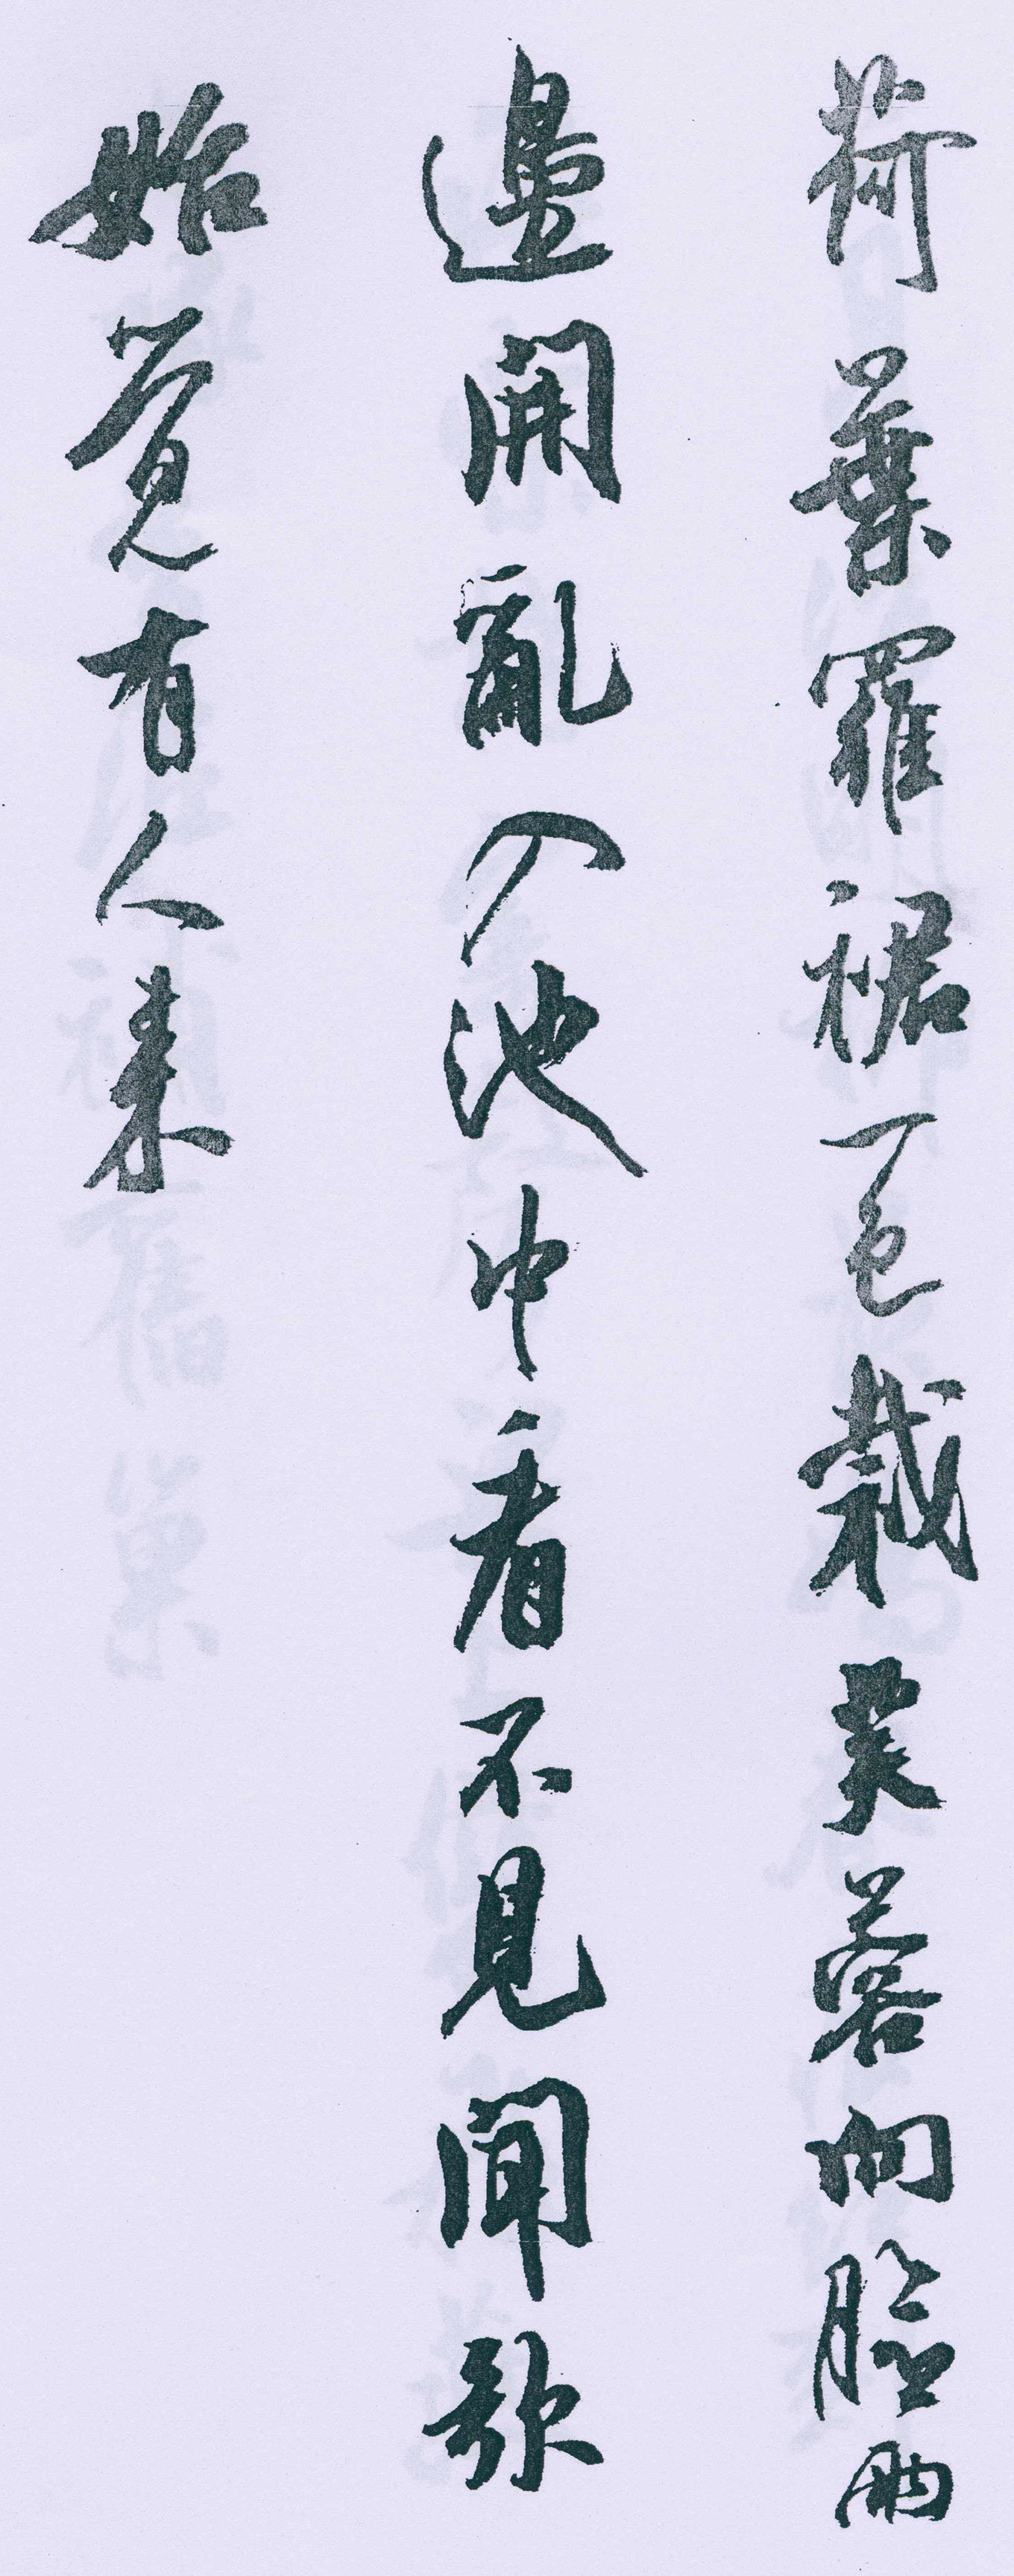 荷葉羅裙一色裁芙蓉向臉兩
邊開亂入池中看不見聞歌
始覺有人来